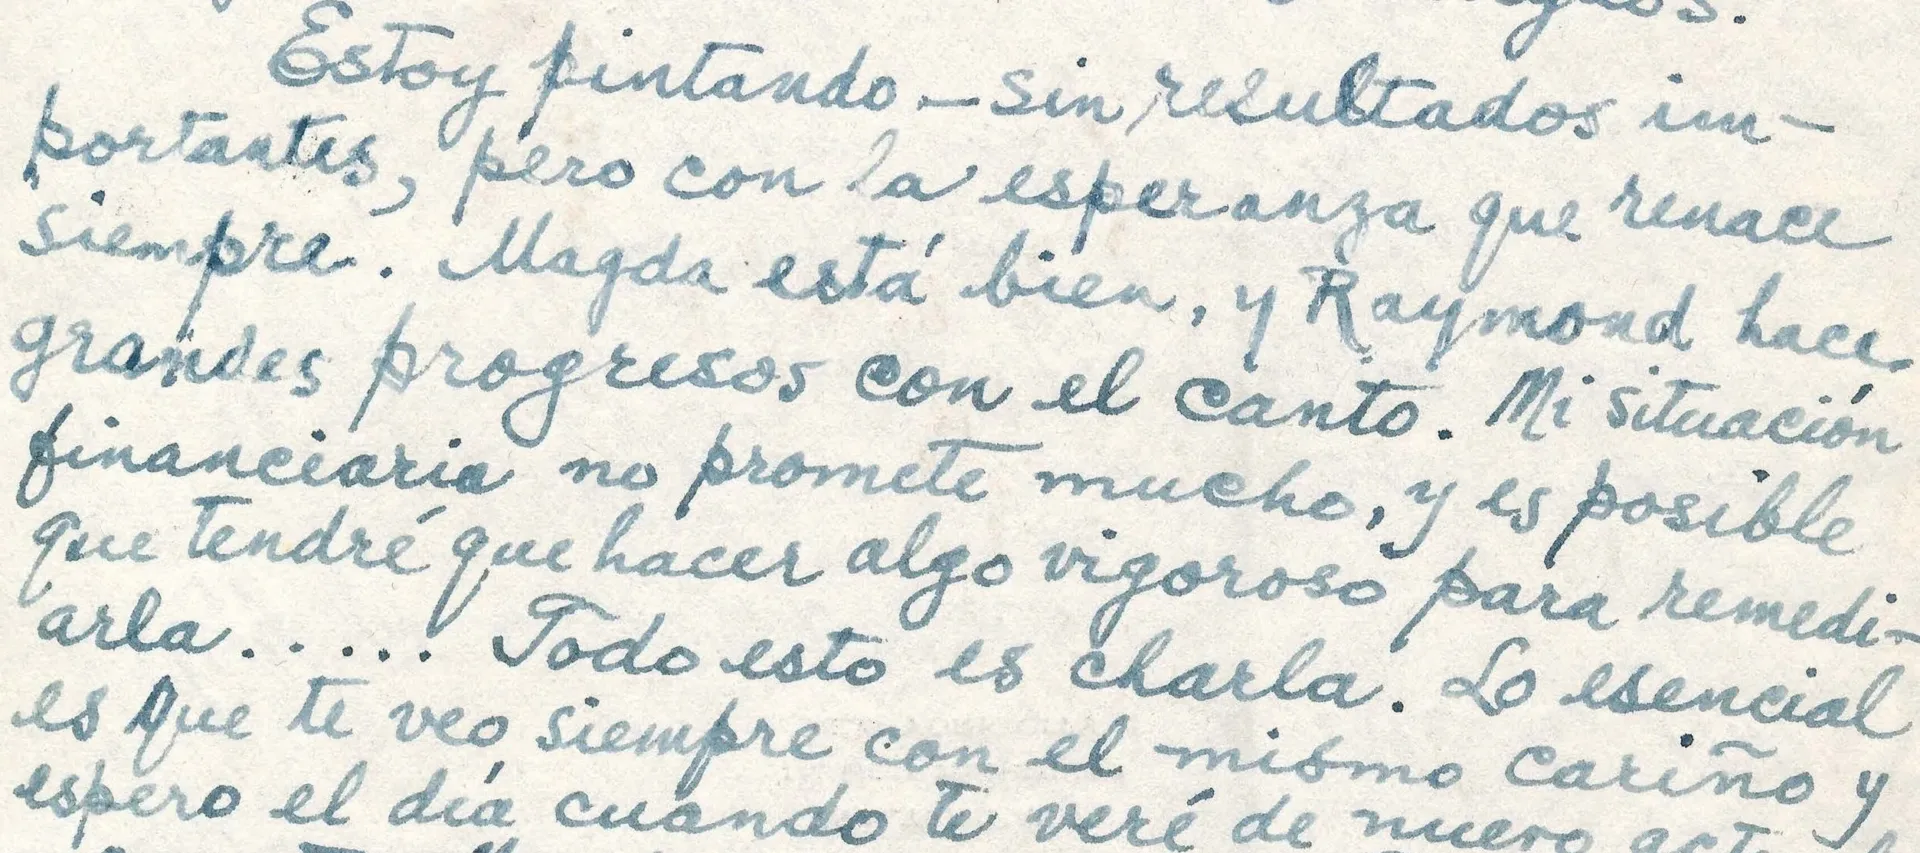 Estoy pintando — sin resultados im-
portantes, pero con la esperanza que renace
siempre. Magda está bien, y Raymond hace
grandes progresos con el canto. Mi situación
financiaria no promete mucho, y es posible
que tendré que hacer algo vigoroso para remedi-
arla..... Todo esto es charla. Lo esencial
es que te veo siempre con el mismo cariño y
espero el día cuando te veré de nuevo